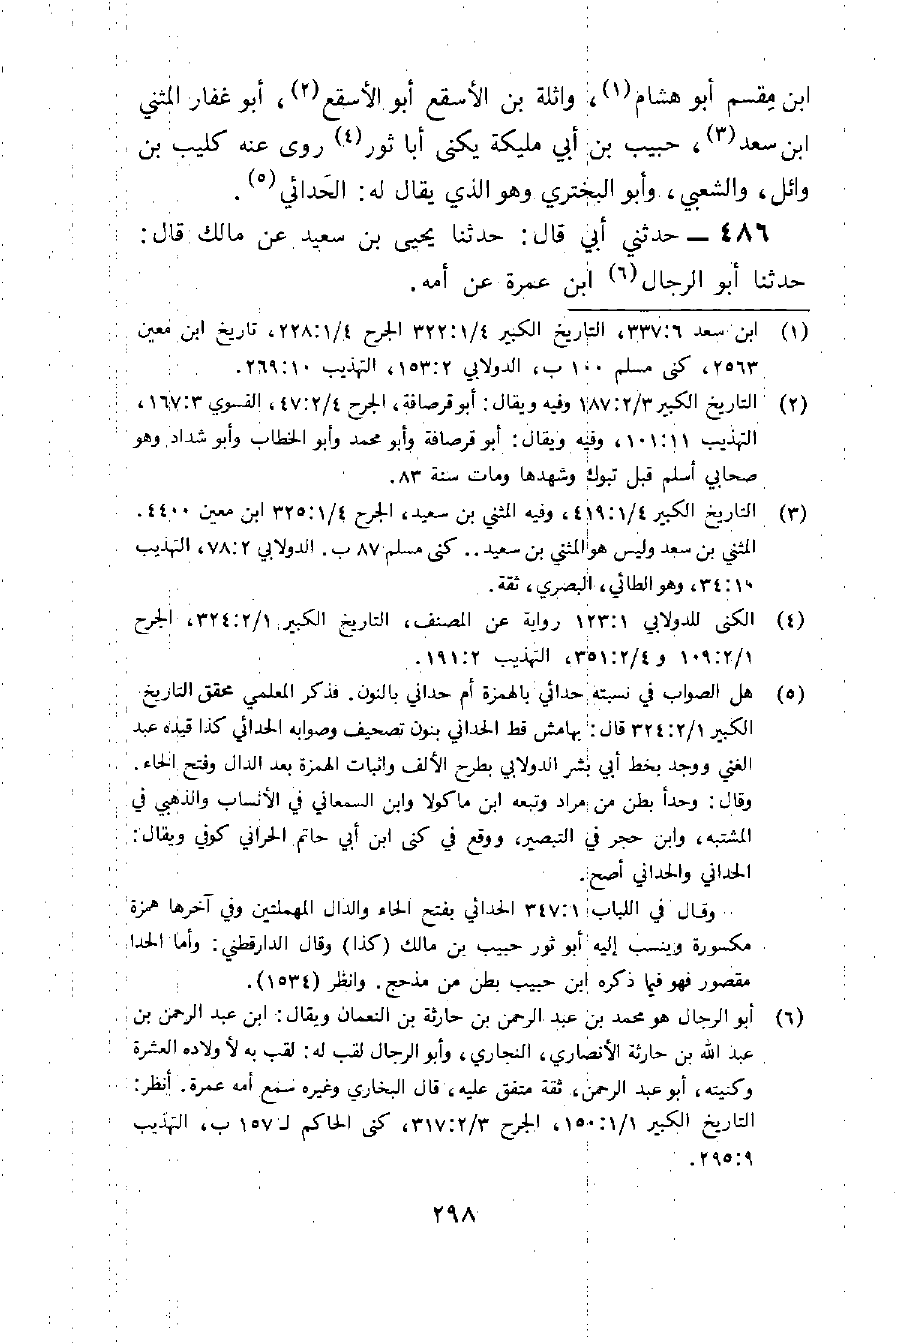 ابن مِقسم أبو هشام(١)، واثلة بن الأسقع أبو الأسقع(٢)، أبو غفار المثني
ابن سعد(٣)، حبيب بن أبي مليكة يكنى أبا ثور(٤) روى عنه كليب بن
وائل، والشعبي، وأبو البختري وهو الذي يقال له: الحَدائي(٥).
٤٨٦ ــ حدثني أبي قال: حدثنا يحيى بن سعيد عن مالك قال:
حدثنا أبو الرجال(٦) ابن عمرة عن أمه.
(١) ابن سعد ٣٣٧:٦، التاريخ الكبير ٣٢٢:١/٤ الجرح ٢٢٨:١/٤، تاريخ ابن معين
٢٥٦٣، كنى مسلم ١٠٠ ب، الدولابي ١٥٣:٢، التهذيب ٢٦٩:١٠.
(٢) التاريخ الكبير ١٨٧:٢/٣ وفيه ويقال: أبو قرصافة، الجرح ٤٧:٢/٤، الفسوي ١٦٧:٣،
التهذيب ١٠١:١١، وفيه ويقال: أبو قرصافة وأبو محمد وأبو الخطاب وأبو شداد وهو
صحابي أسلم قبل تبوك وشهدها ومات سنة ٨٣.
(٣) التاريخ الكبير ٤١٩:١/٤، وفيه المثني بن سعيد، الجرح ٣٢٥:١/٤ ابن معين ٤٤٠٠.
المثني بن سعد وليس هو المثني بن سعيد.. كنى مسلم ٨٧ ب. الدولابي ٧٨:٢، التهذيب
٣٤:١٠، وهو الطائي، البصري، ثقة.
(٤) الكنى للدولابي ١٢٣:١ رواية عن المصنف، التاريخ الكبير ٣٢٤:٢/١، الجرح
١٠٩:٢/١ و ٣٥١:٢/٤، التهذيب ١٩١:٢.
(٥) هل الصواب في نسبته حدائي بالهمزة أم حداني بالنون. فذكر المعلمي محقق التاريخ
الكبير ٣٢٤:٢/١ قال: بهامش قط الحداني بنون تصحيف وصوابه الحدائي كذا قيده عبد
الغني ووجد بخط أبي بشر الدولابي بطرح الألف واثبات الهمزة بعد الدال وفتح الحاء.
وقال: وحدأ بطن من مراد وتبعه ابن ماكولا وابن السمعاني في الأنساب والذهبي في
المشتبه، وابن حجر في التبصير، ووقع في كنى ابن أبي حاتم الحراني كوفي ويقال:
الحداني والحدائي أصح.
وقال في اللباب ٣٤٧:١ الحدائي بفتح الحاء والدال المهملتين وفي آخرها همزة
مكسورة وينسب إليه أبو ثور حبيب بن مالك (كذا) وقال الدارقطني: وأما الحدا
مقصور فهو فيما ذكره ابن حبيب بطن من مذحج. وانظر (١٥٣٤).
(٦) أبو الرجال هو محمد بن عبد الرحمن بن حارثة بن النعمان ويقال: ابن عبد الرحمن بن
عبد الله بن حارثة الأنصاري، النجاري، وأبو الرجال لقب له: لقب به لأ ولاده العشرة
وكنيته، أبو عبد الرحمن، ثقة متفق عليه، قال البخاري وغيره سمع أمه عمرة. أنظر:
التاريخ الكبير ١٥٠:١/١، الجرح ٣١٧:٢/٣، كنى الحاكم لـ ١٥٧ ب، التهذيب
٢٩٥:٩.
٢٩٨